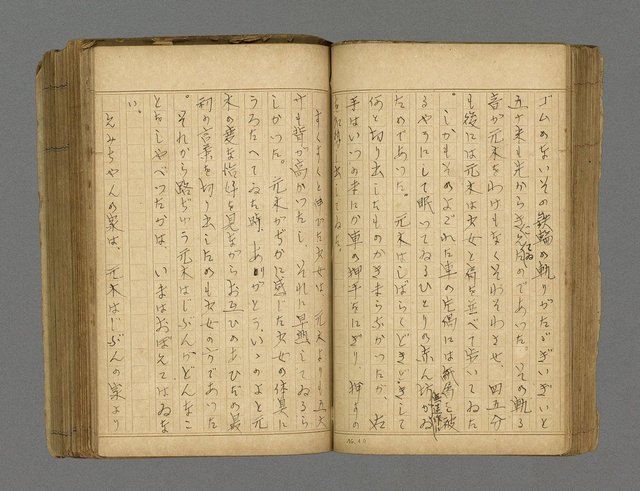 ゴムのないその鉄輪の軌りがたゞぎいぎいと
五十米も先からきこえるのであつた。その軌る
音が元木をわけもなくそわそわさせ、四五分
も後には元木は少女と肩を並べて歩いてゐた
。しかもそのよごれた車の片隅には紙屑と破
るやうにして眠つてゐるひとりの赤ん坊がゐ
ためであつた。元木はしばらくどきどきして
何と切り出したものかきまらなかつたが、右
手はいつのまにか車の押手をにぎり、押すの
出してゐた。
すくすくと伸びた少女は、元木よりも五六
寸も背が高かつたし、それに早熟してゐるら
しかつた。元木がぢかに感じた少女の体臭に
うろたへてゐた時、ありがとう、いゝのよと元
木の変な恰好を見ながらお互ひのあひだの最
初の言葉を切り出したのも少女の方であつた
。それから路ぢゆう元木はじぶんがどんなこ
とをしやべつたかは、いまはおぼえてはゐな
い。
えみちやんの家は、元木はじぶんの家より
16.40